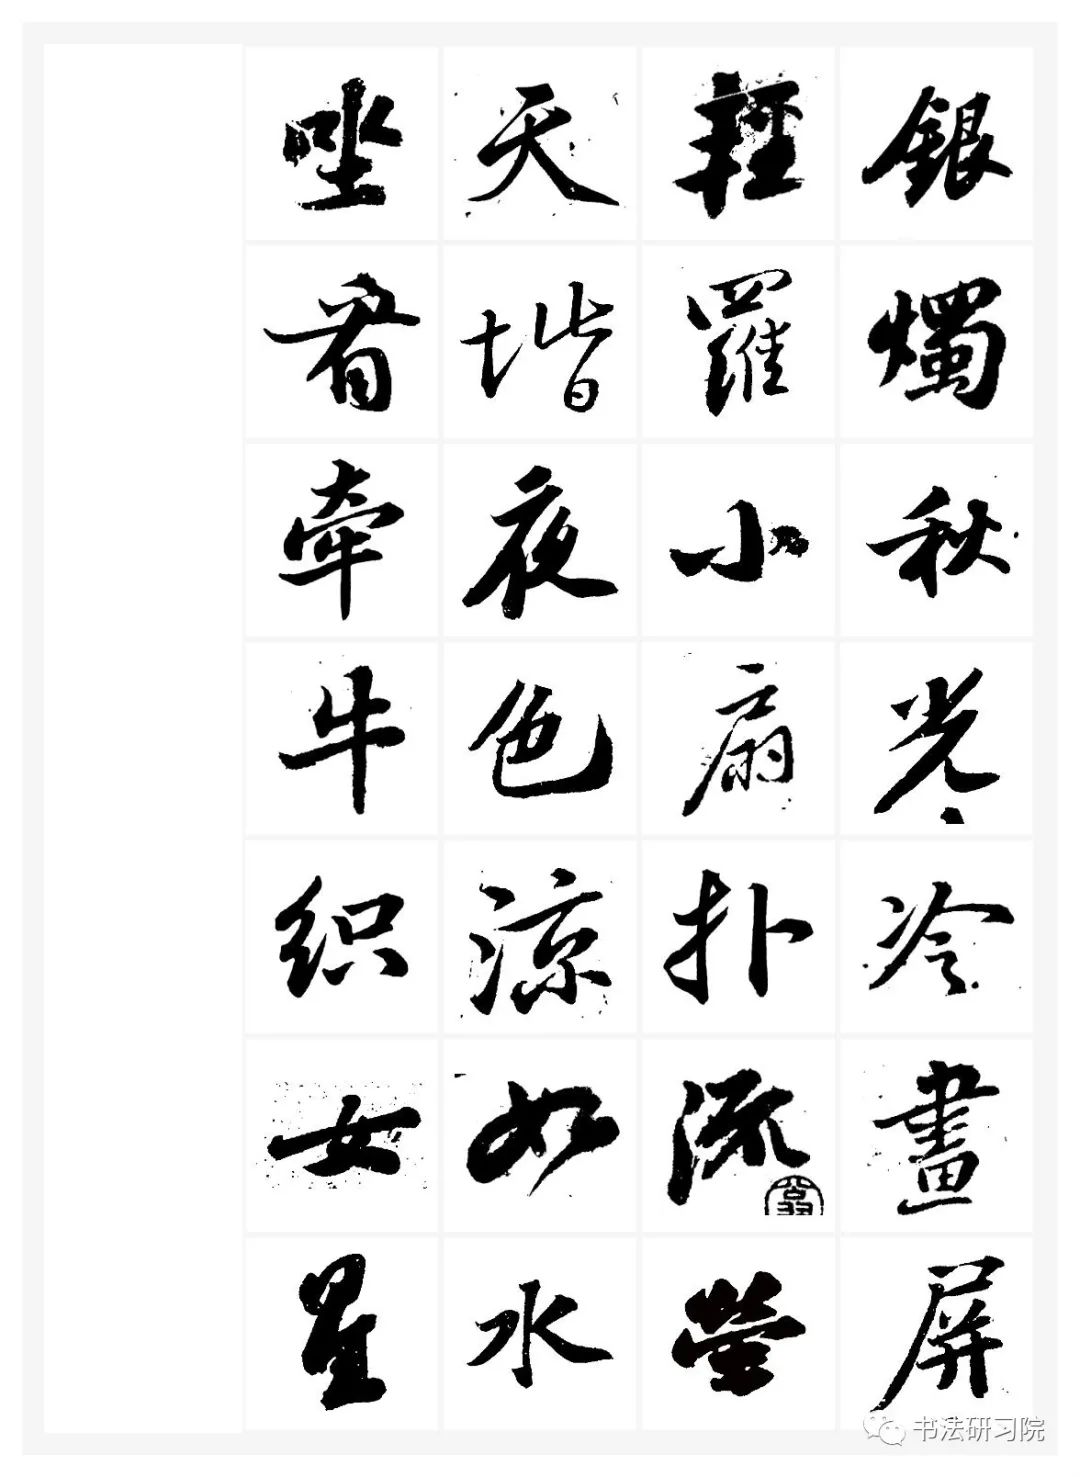 銀燭秋光冷畫屏
輕羅小扇扑流螢
天堦夜色涼如水
坐看牽牛织女星
书法研习院